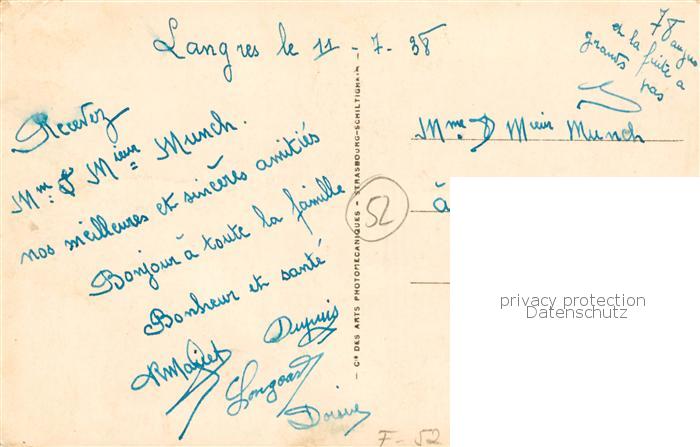 Langres le 11-7-38
Recevez
Mme & Mieur Munch.
nos meilleures et sincères amitiés
Bonjour à toute la famille
Bonheur et santé
Dupuis
C<sup>ie</sup> DES ARTS PHOTOMECANIQUES - STRASBOURG-SCHILTIGHEIM
et la fuite a
grands pas
Mme & Mieur Munch
à
52
privacy protection
Datenschutz
F-52